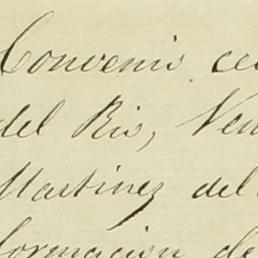 Convenio ce
del Rio, Ven
Martinez del
formacion de